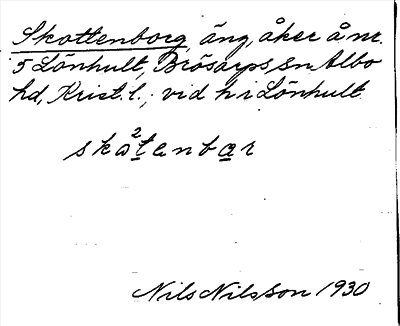 Skottenborg, äng, åker å nr.
5 Lönhult, Brösarps sn Albo
hd, Krist. l.; vid h i Lönhult
ska²tenbar
Nils Nilsson 1930